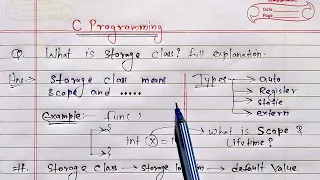 Date
Page
C Programming
Q. What is storage class? full explanation.
Ans:- Storage class means
Scope and ......
Types → auto
→ Register
→ Static
→ extern
Example: fun( )
{
int x = 1
}
what is Scope &
Lifetime?
#. Storage class → storage → default value